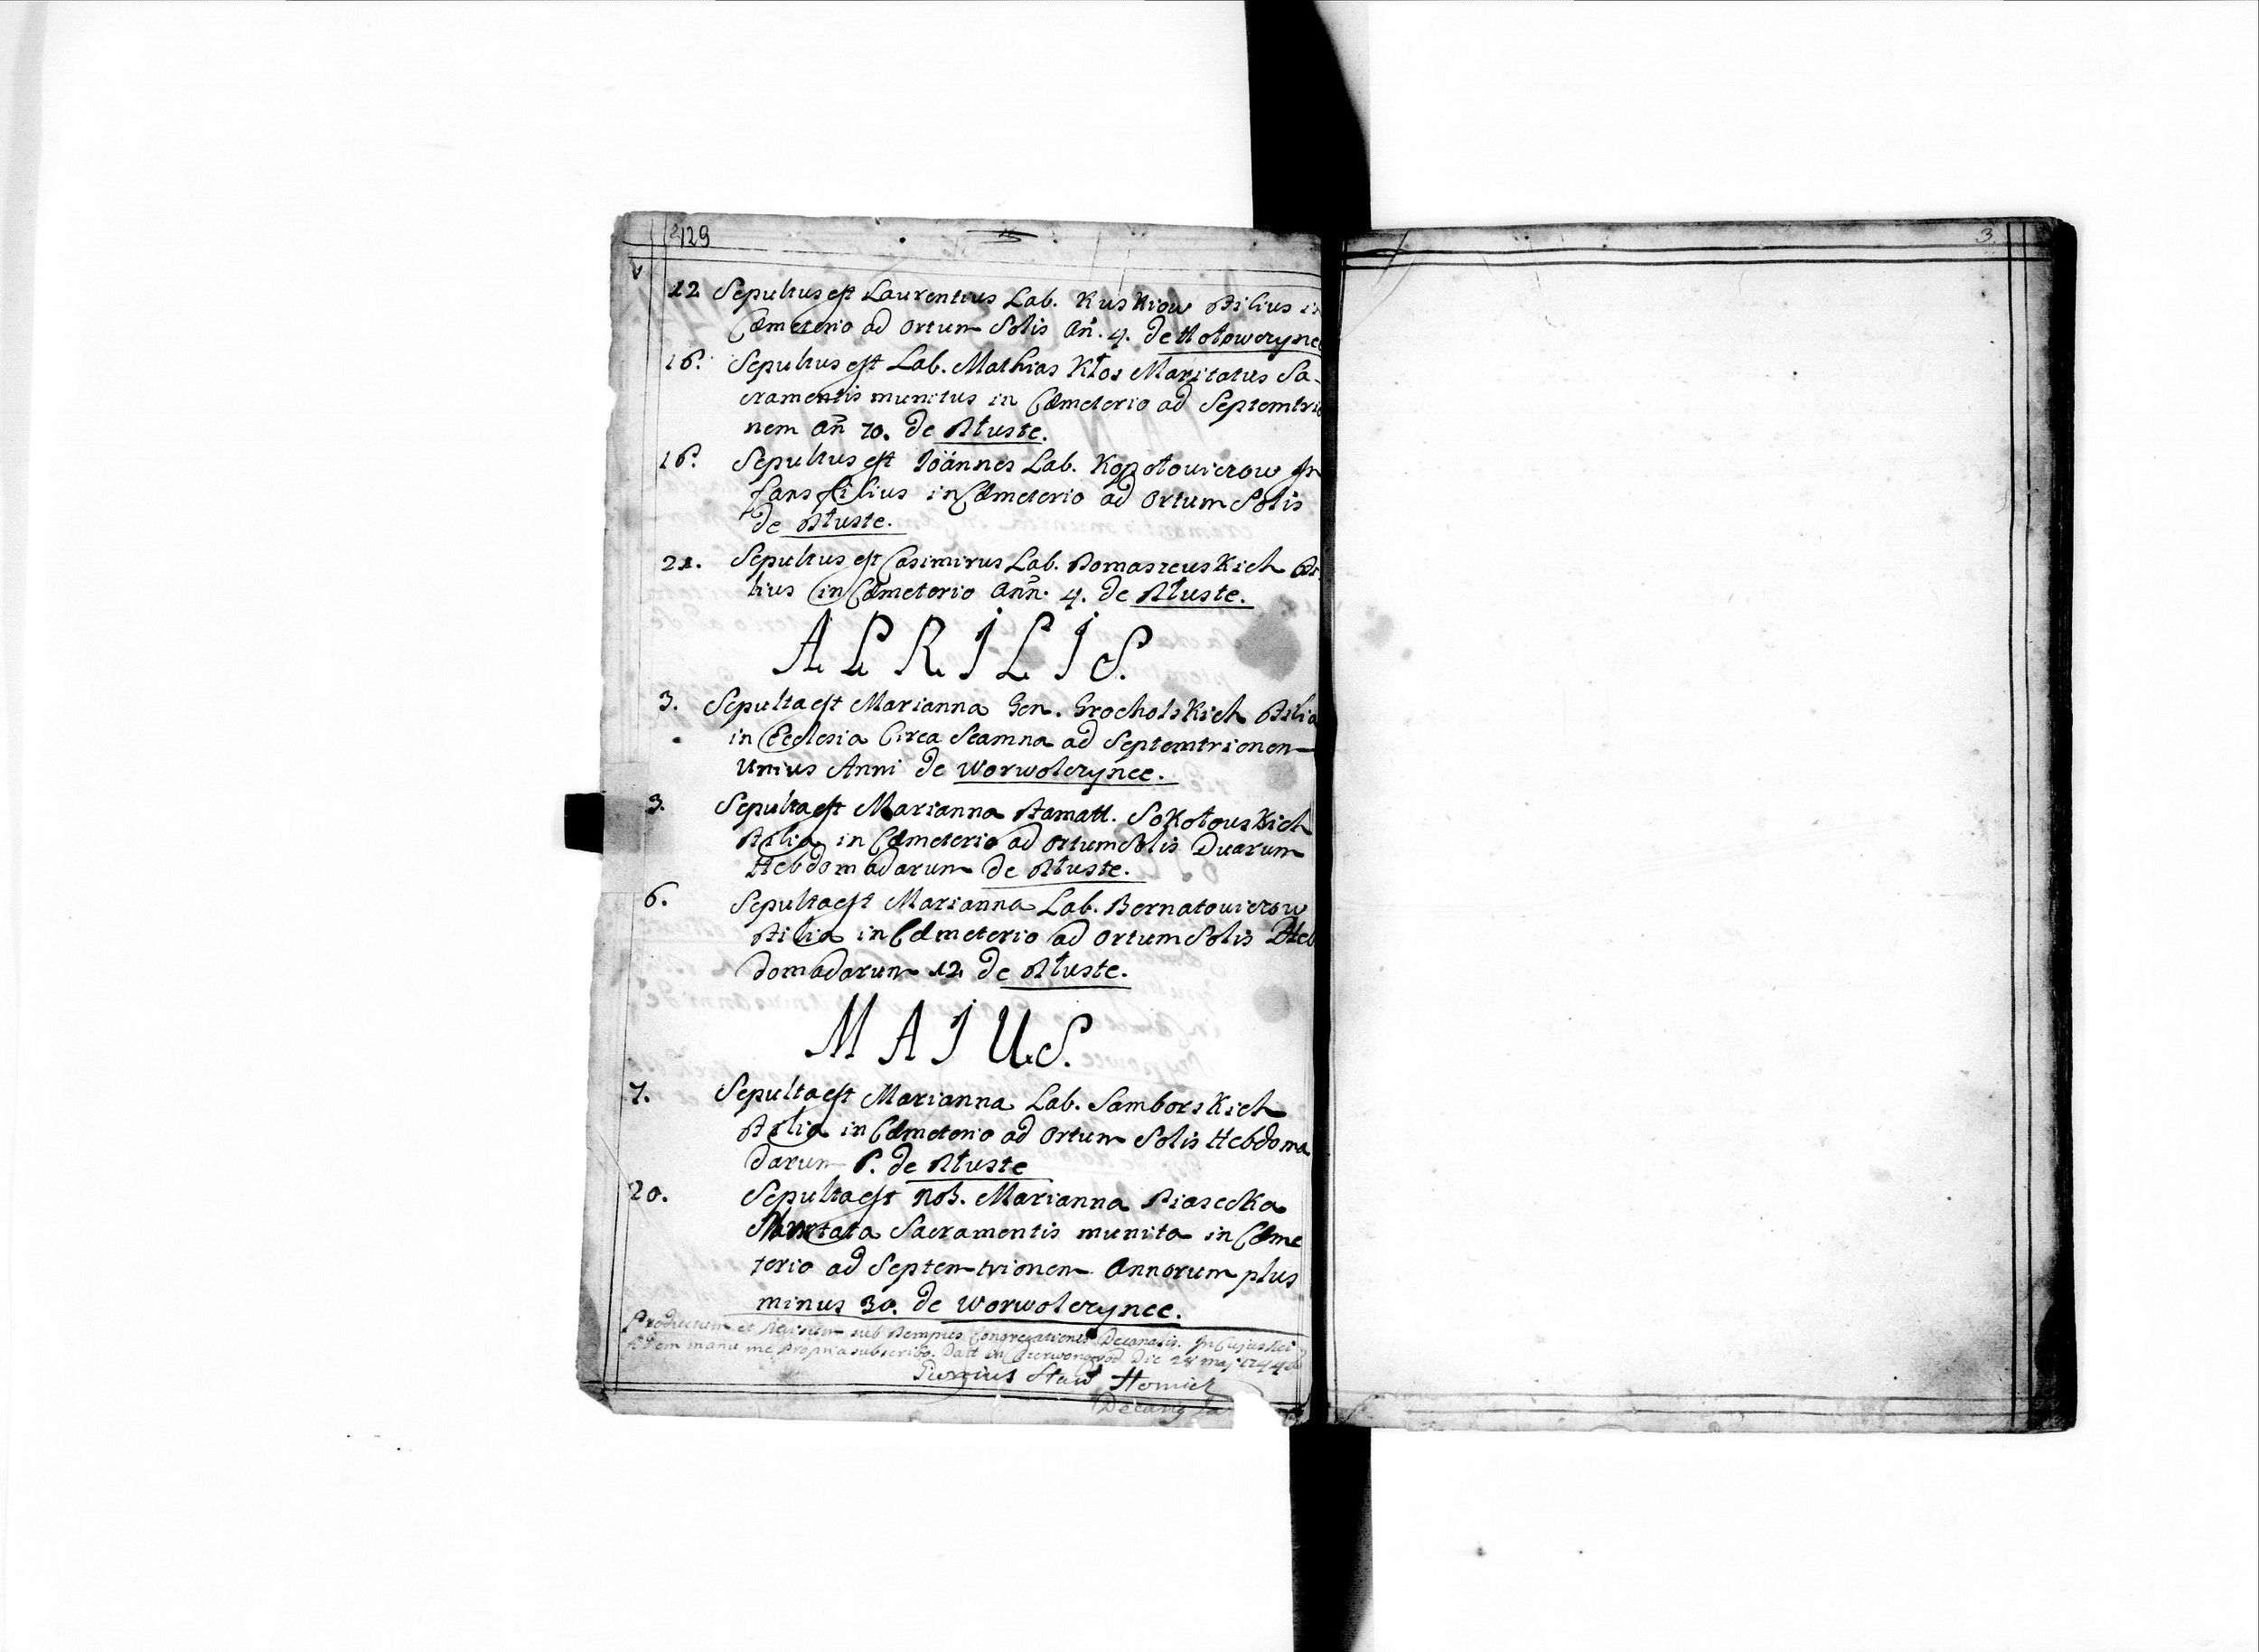 129
3.
12 Sepultus est Laurentius Lab. Kuskiow Filius in
Cæmeterio ad ortum Solis Añ. 4. de Hołowczynce
16. Sepultus est Lab. Mathias Kłos Maritatus Sa-
cramentis munitus in Cæmeterio ad Septemtrio
nem Añ 70. de Tłuste.
16. Sepultus est Joannes Lab. Kopołowiczow In
fans filius in Cæmeterio ad ortum Solis
de Tłuste.
21. Sepultus est Casimirus Lab. Tomaszewskich Fi
lius in Cæmeterio Añn. 4. de Tłuste.
APRILIS.
3. Sepulta est Marianna Gen. Grocholskich Filia
in Ecclesia Circa Scamna ad Septemtrionem
Unius Anni de Worwolczynce.
3. Sepulta est Marianna Famatt. Sokołowskich
Filia in Cæmeterio ad ortum Solis Duarum
Hebdomadarum de Tłuste.
6. Sepulta est Marianna Lab. Bernatowiczow
Filia in Cæmeterio ad ortum Solis Heb
domadarum 12 de Tłuste.
MAIUS.
7. Sepulta est Marianna Lab. Samborskich
Filia in Cæmeterio ad ortum Solis Hebdoma
darum de Tłuste
20. Sepulta est Nob. Marianna Piasecka
Maritata Sacramentis munita in Cæme
terio ad Septemtrionem Annorum plus
minus 30. de Worwolczynce.
Productum et sub tempus Congregationis Decanalis. In Cujus Rei
fidem manu me propria subscribo. Datt in Czerwonogrod Die 28 maj